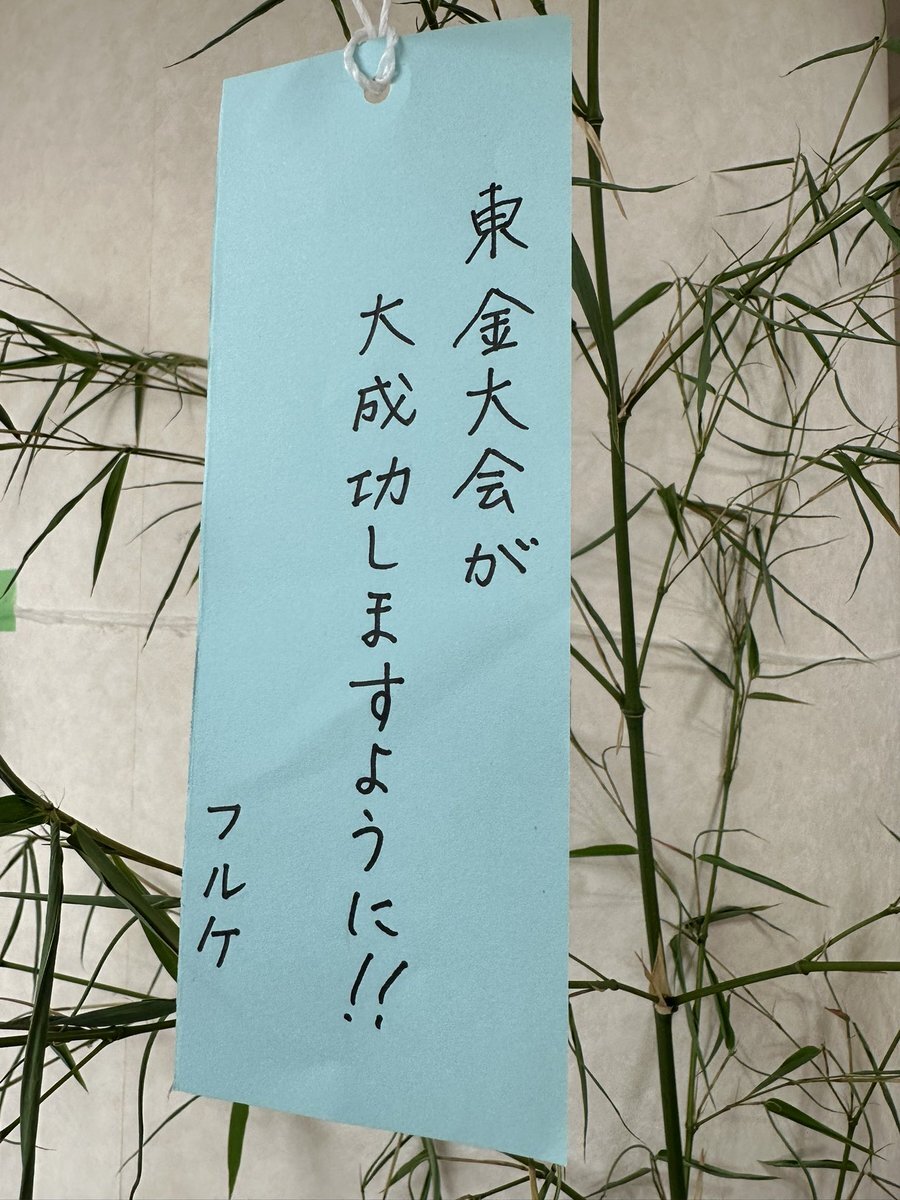 東金大会が
大成功しますように!!
フルケ